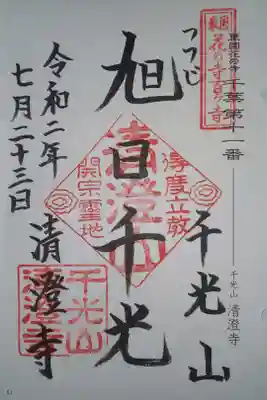 東国
花の寺百ヶ寺
東国花の寺 千葉第十一番
千光山 清澄寺
千光山
つつじ
旭日千光
清澄山
得度立教
開宗霊地
令和二年
七月二十三日
清澄寺
千光山
清澄寺